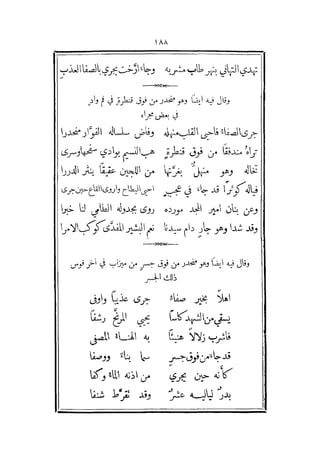 ١٨٨
تهدي التهاني بنهر طاب مشربه وجاء ارّخت يجري بالصفا العذب
وقال فيه ايضًا وهو منحدر من فوق قنطرةٍ في فم وادٍ
في بعض مجراه
جرى الصفاء فاحيى القلب منهله وفاض سلساله الفوّار منحدرا
تراهُ مندفقًا من فوق قنطرةٍ هب النسيم بوادي سفحها وسرى
تخاله وهو منهلٌّ بغرّتها من اللجين عقيقًا ينثر الدررا
فياله كوثرًا قد جاء في عجبٍ احيى البطاح واروى القاع حين جرى
وعن بنان امير المجد مورده روى بجدوله الطامي لنا خبرا
وقد شدا وهو جارٍ دام سيدنا نعم البشير المفدَّى كوكب الامرا
وقال فيه ايضًا وهو منحدر من فوق جسرٍ من ميزاب في آخر قوس
ذلك الجسر
اهلاً بخير صفاءٍ جرى عذيبًا وافى
يسقي من الشهد كاسًا يحيي المرنّح رشفًا
فاشرب زلالاً هنيئًا به الهناء المصفى
قد جاء من فوق جسرٍ سما بناءً ووصفا
كأَنه حين يجري من اذنه الماء وكفا
بدرٌ لياليه عشرٌ وقد تقرَّط شنفا